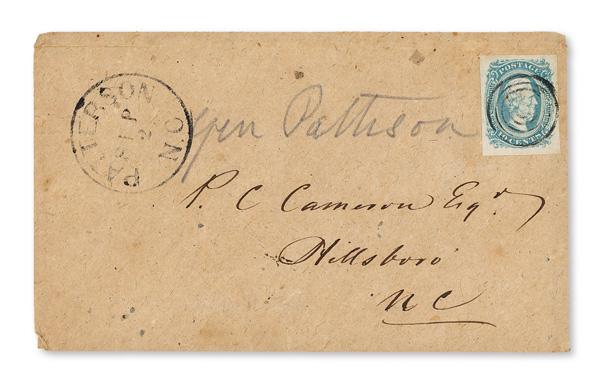 PATTERSON N.C.
SEP
2
POSTAGE
10 CENTS
Pattison
P. C Cameron Esqr
Hillsboro
NC